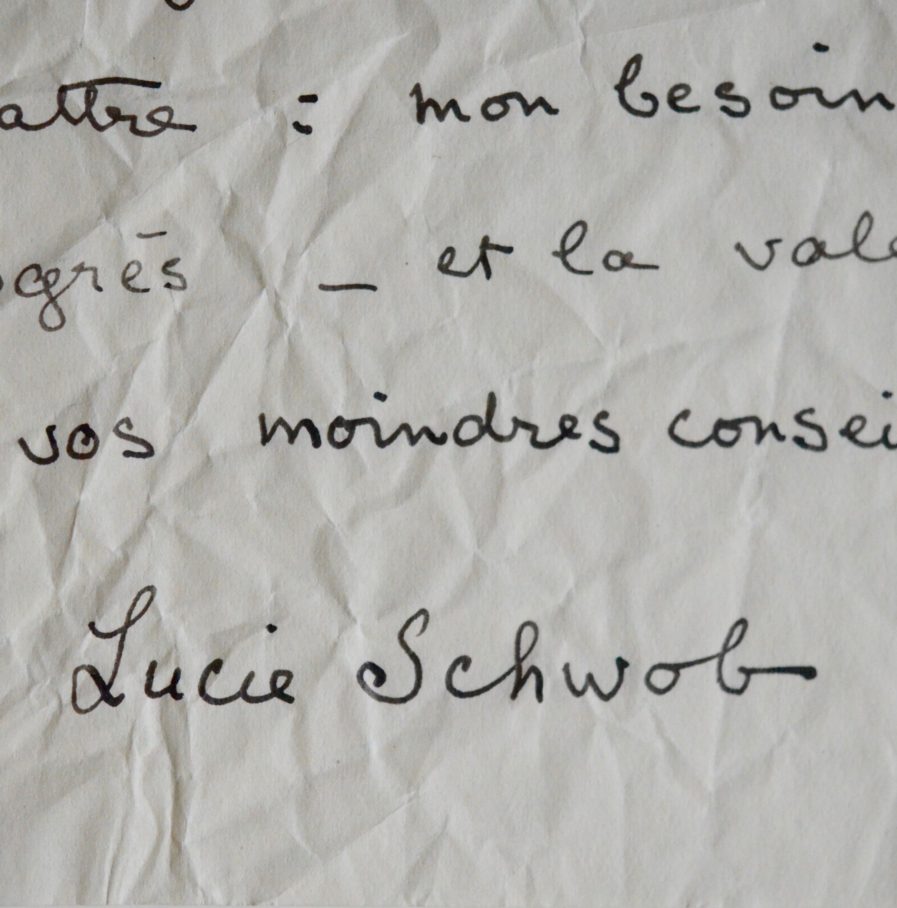 attre : mon besoin
ogrès — et la vale
vos moindres consei
Lucie Schwob